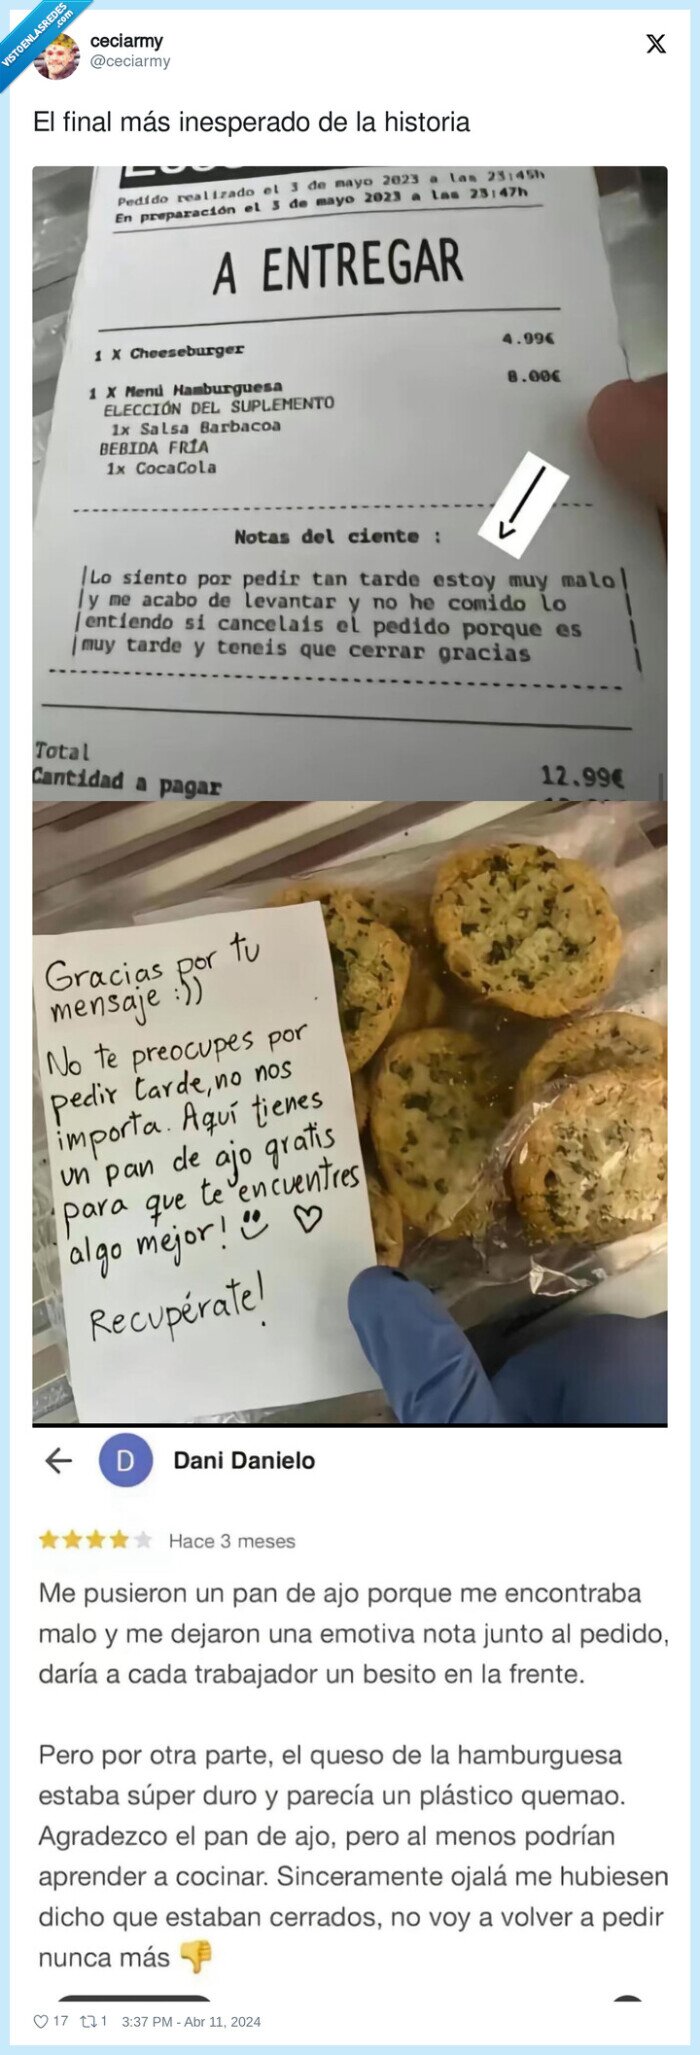 VISTOENLASREDES
.com
ceciarmy
@ceciarmy
El final más inesperado de la historia
Pedido realizado el 3 de mayo 2023 a las 23:45h
En preparación el 3 de mayo 2023 a las 23:47h
A ENTREGAR
1 X Cheeseburger 4.99€
1 X Menú Hamburguesa 8.00€
ELECCIÓN DEL SUPLEMENTO
1x Salsa Barbacoa
BEBIDA FRÍA
1x CocaCola
Notas del ciente :
Lo siento por pedir tan tarde estoy muy malo
y me acabo de levantar y no he comido lo
entiendo si cancelais el pedido porque es
muy tarde y teneis que cerrar gracias
Total
Cantidad a pagar 12.99€
Gracias por tu
mensaje :))
No te preocupes por
pedir tarde, no nos
importa. Aquí tienes
un pan de ajo gratis
para que te encuentres
algo mejor!
Recupérate!
D Dani Danielo
Hace 3 meses
Me pusieron un pan de ajo porque me encontraba
malo y me dejaron una emotiva nota junto al pedido,
daría a cada trabajador un besito en la frente.
Pero por otra parte, el queso de la hamburguesa
estaba súper duro y parecía un plástico quemao.
Agradezco el pan de ajo, pero al menos podrían
aprender a cocinar. Sinceramente ojalá me hubiesen
dicho que estaban cerrados, no voy a volver a pedir
nunca más 👎
17 1 3:37 PM - Abr 11, 2024